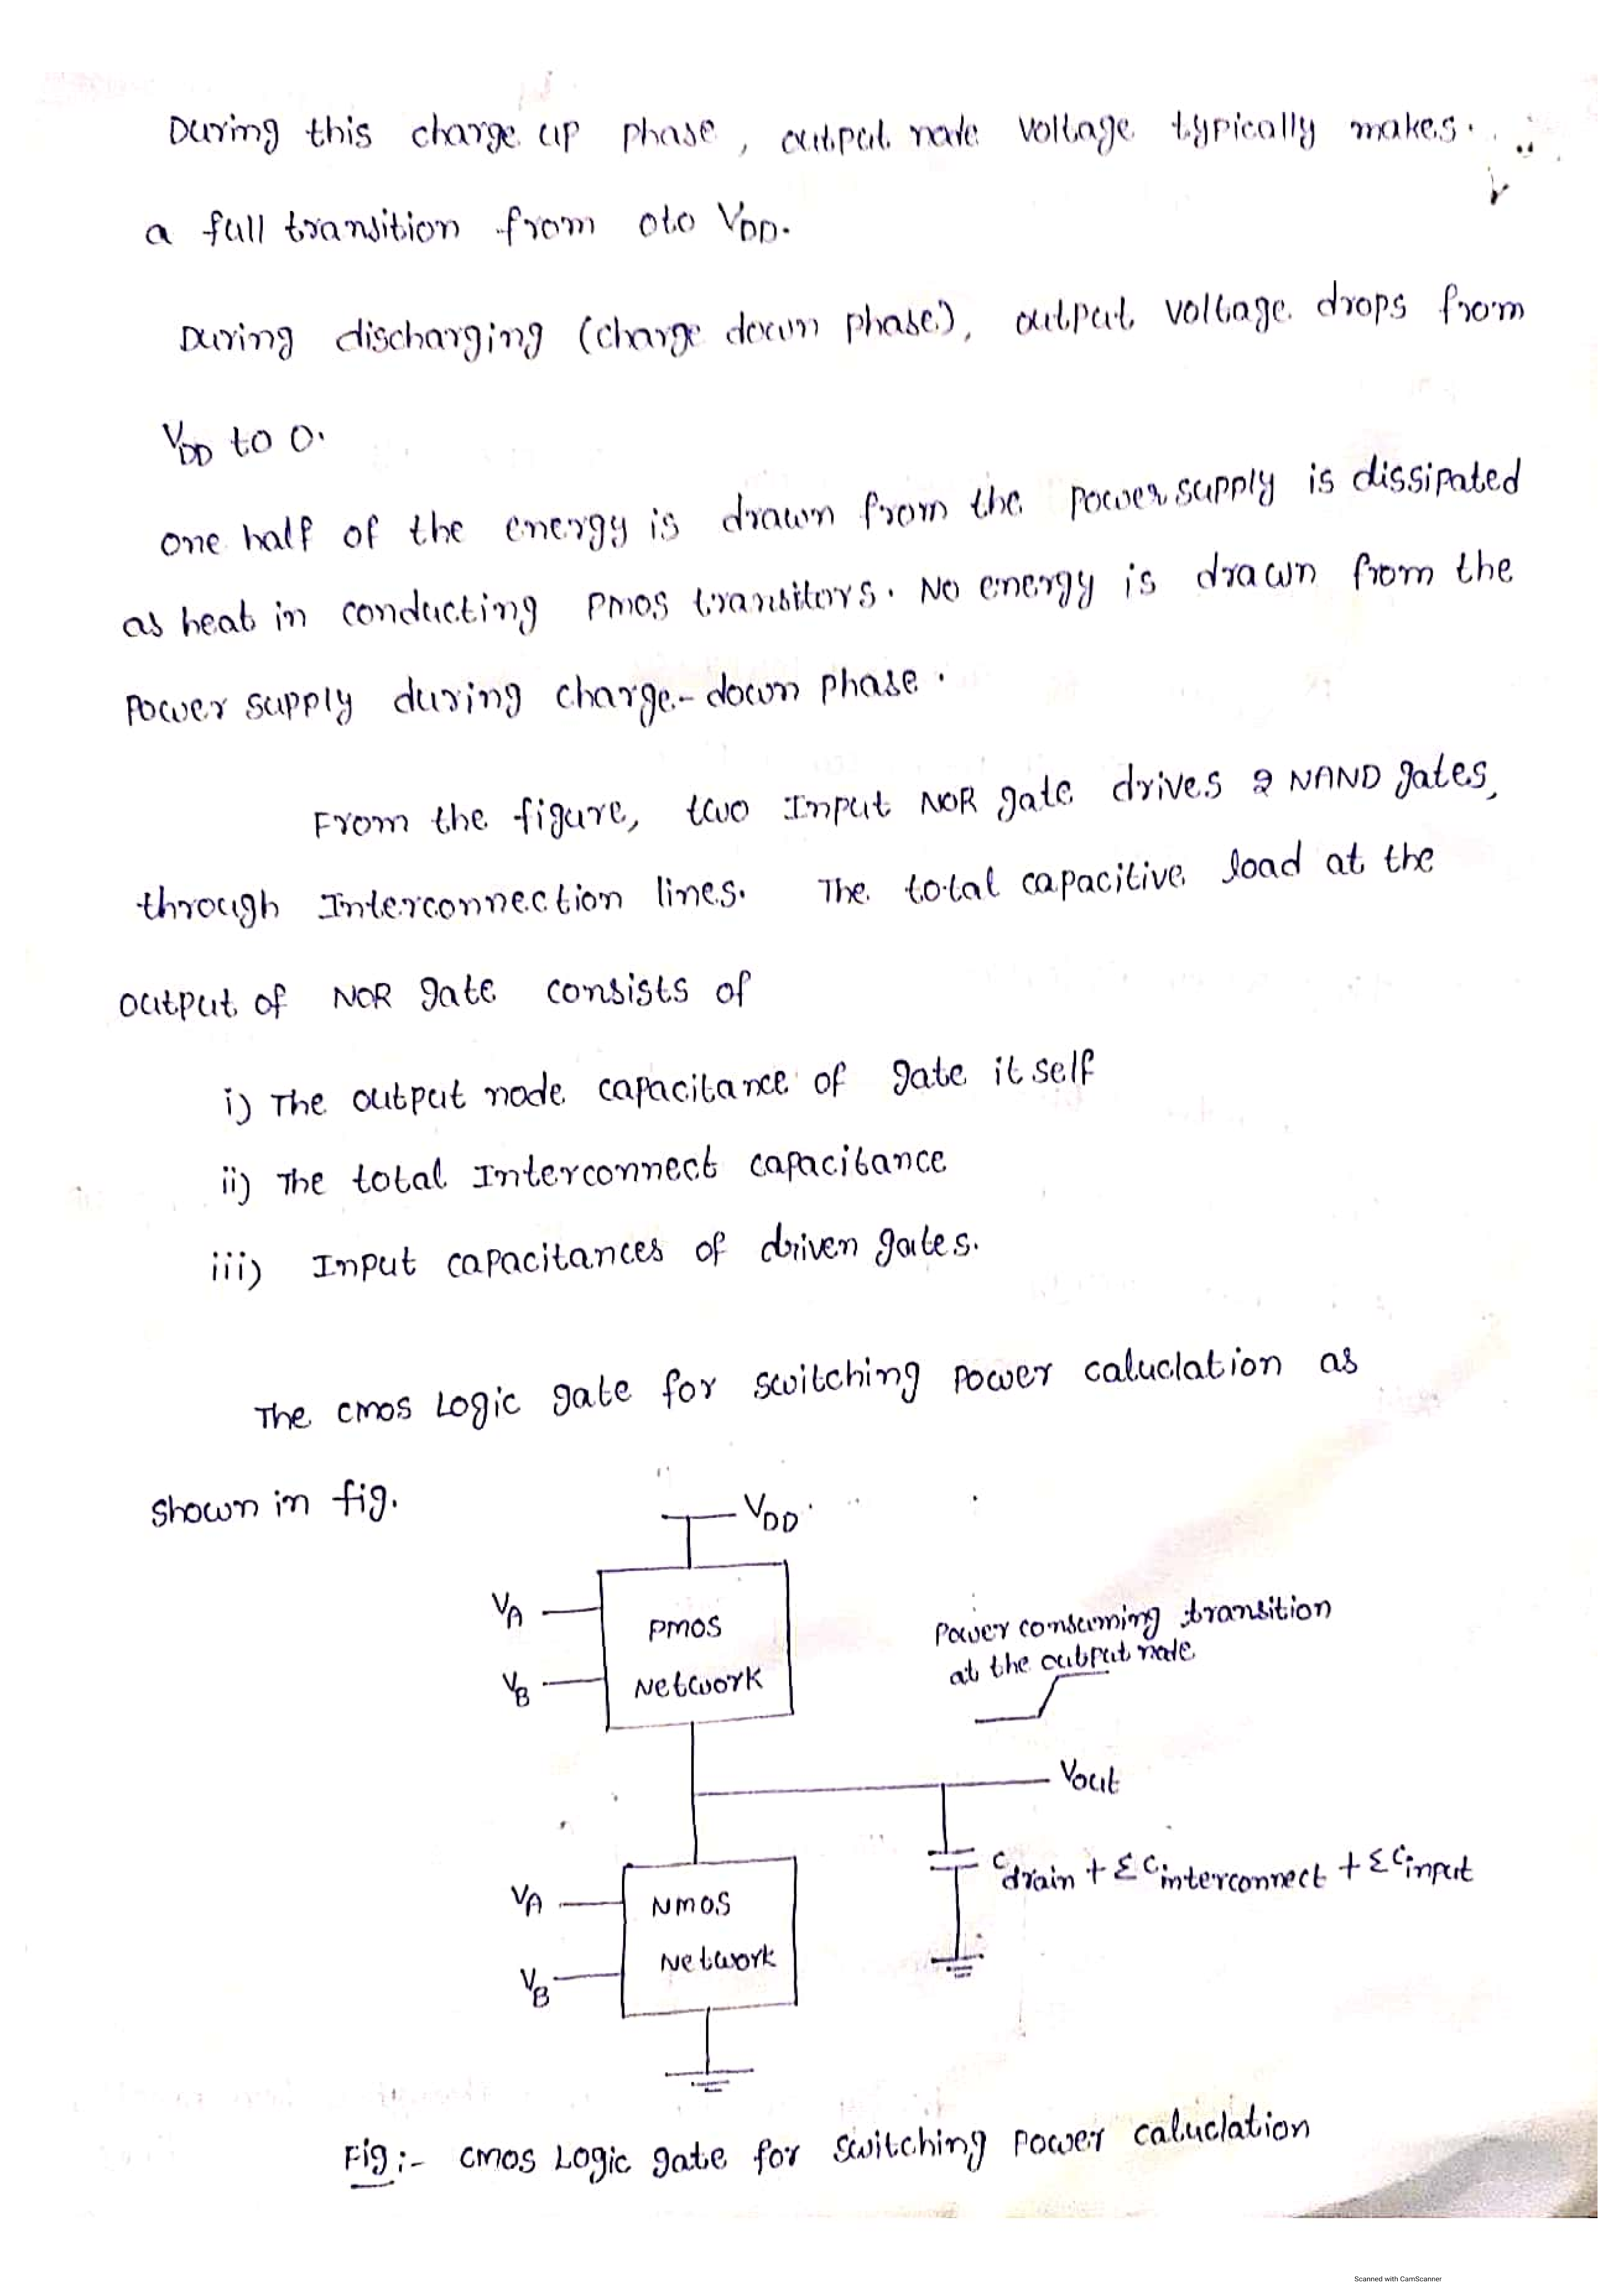 During this charge up phase, output node voltage typically makes.
a full transition from 0to VDD.
During discharging (charge down phase), output voltage drops from
VDD to 0.
one half of the energy is drawn from the power supply is dissipated
as heat in conducting PMOS transitors. No energy is drawn from the
Power supply during charge-down phase.
From the figure, two Input NOR gate drives 2 NAND gates,
through Interconnection lines. The total capacitive load at the
output of NOR gate consists of
i) The output node capacitance of gate it self
ii) The total Interconnect capacitance
iii) Input capacitances of driven gates.
The cmos Logic gate for switching power caluclation as
shown in fig.
VDD
VA
PMOS
Power consuming transition
at the output node
VB
Network
Vout
Cdrain + Σ Cinterconnect + Σ Cinput
VA
NMOS
Network
VB
Fig:- cmos Logic gate for switching power caluclation
Scanned with CamScanner